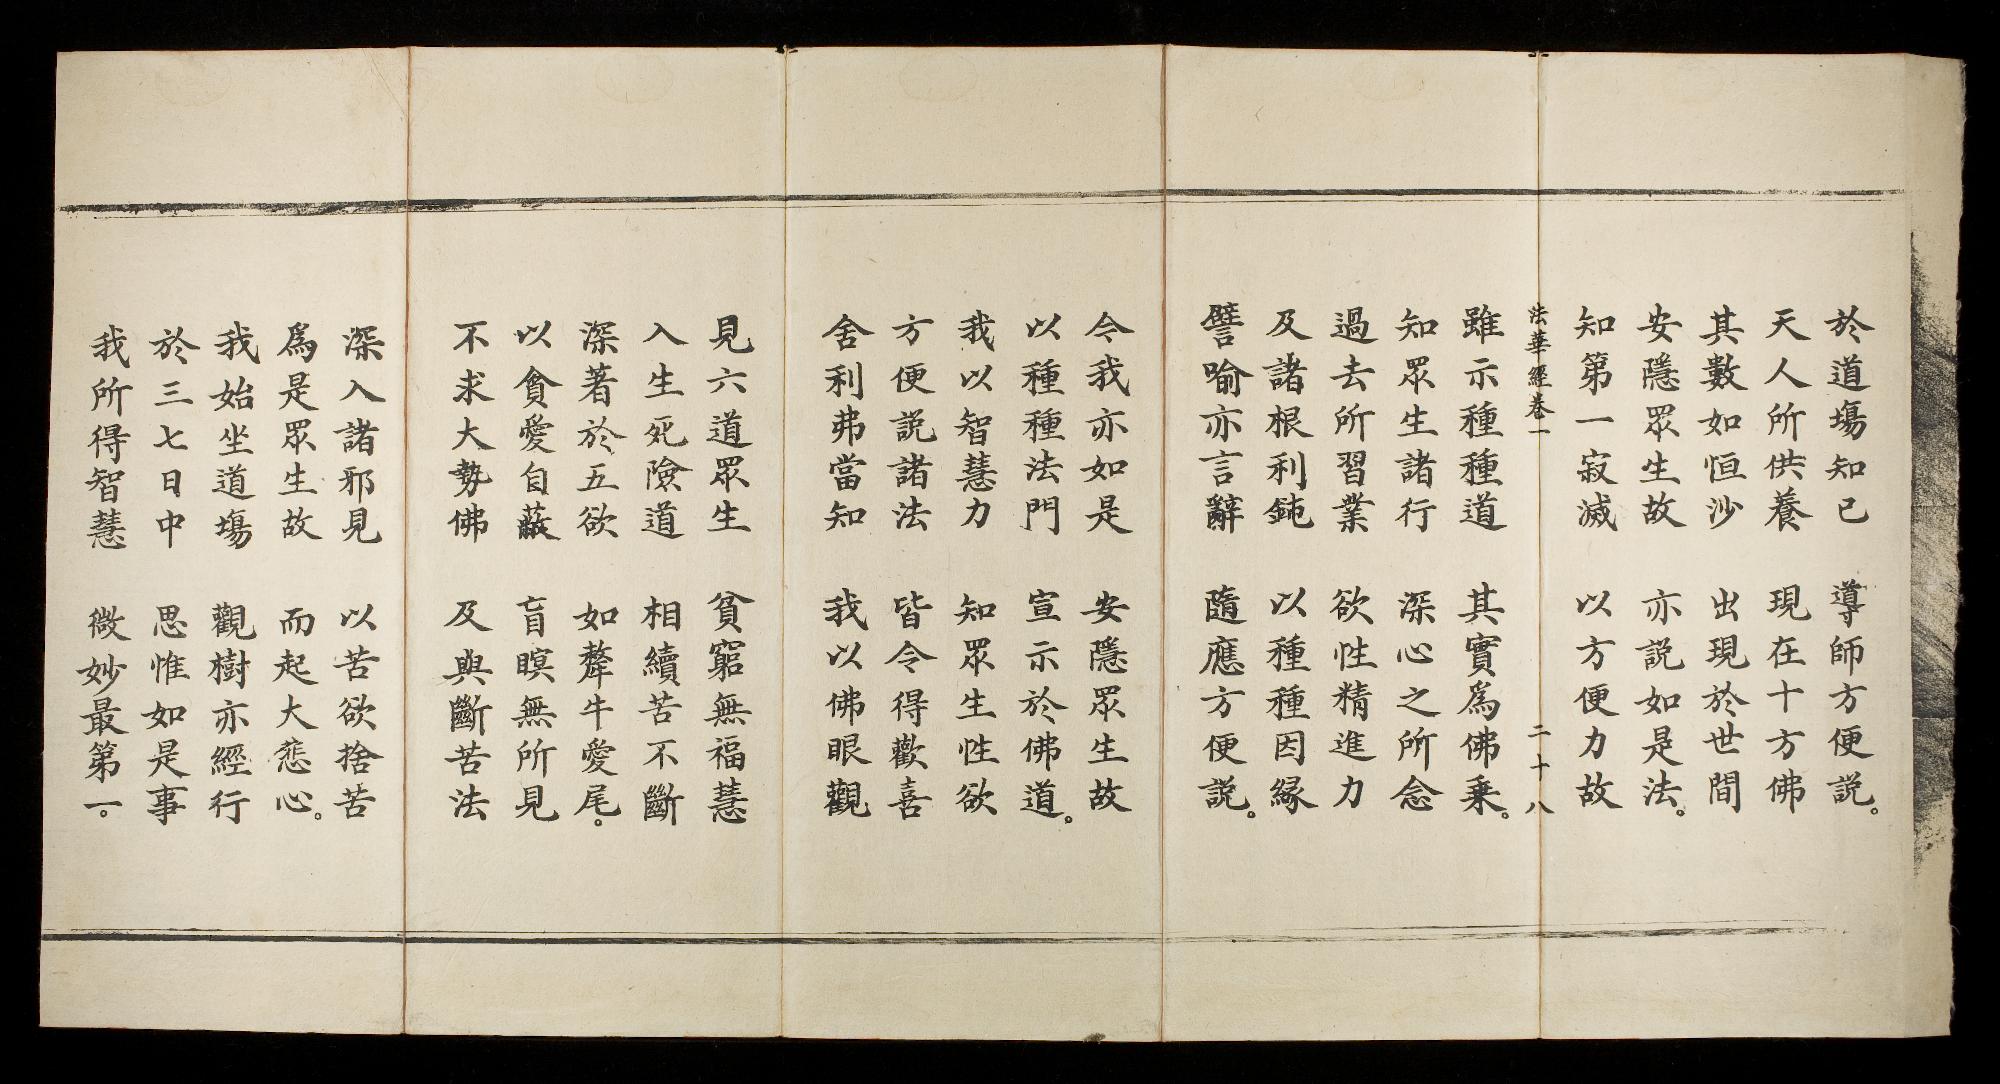 於道場知已　導師方便説。
天人所供養　現在十方佛
其數如恒沙　出現於世間
安隱眾生故　亦説如是法。
知第一寂滅　以方便力故
法華經卷一　二十八
雖示種種道　其實爲佛乗。
知眾生諸行　深心之所念
過去所習業　欲性精進力
及諸根利鈍　以種種因緣
譬喻亦言辭　隨應方便説。
今我亦如是　安隱眾生故
以種種法門　宣示於佛道。
我以智慧力　知眾生性欲
方便説諸法　皆令得歡喜
舍利弗當知　我以佛眼觀
見六道眾生　貧窮無福慧
入生死險道　相續苦不斷
深著於五欲　如犛牛愛尾。
以貪愛自蔽　盲瞑無所見
不求大勢佛　及與斷苦法
深入諸邪見　以苦欲捨苦
爲是眾生故　而起大悲心。
我始坐道場　觀樹亦經行
於三七日中　思惟如是事
我所得智慧　微妙最第一。